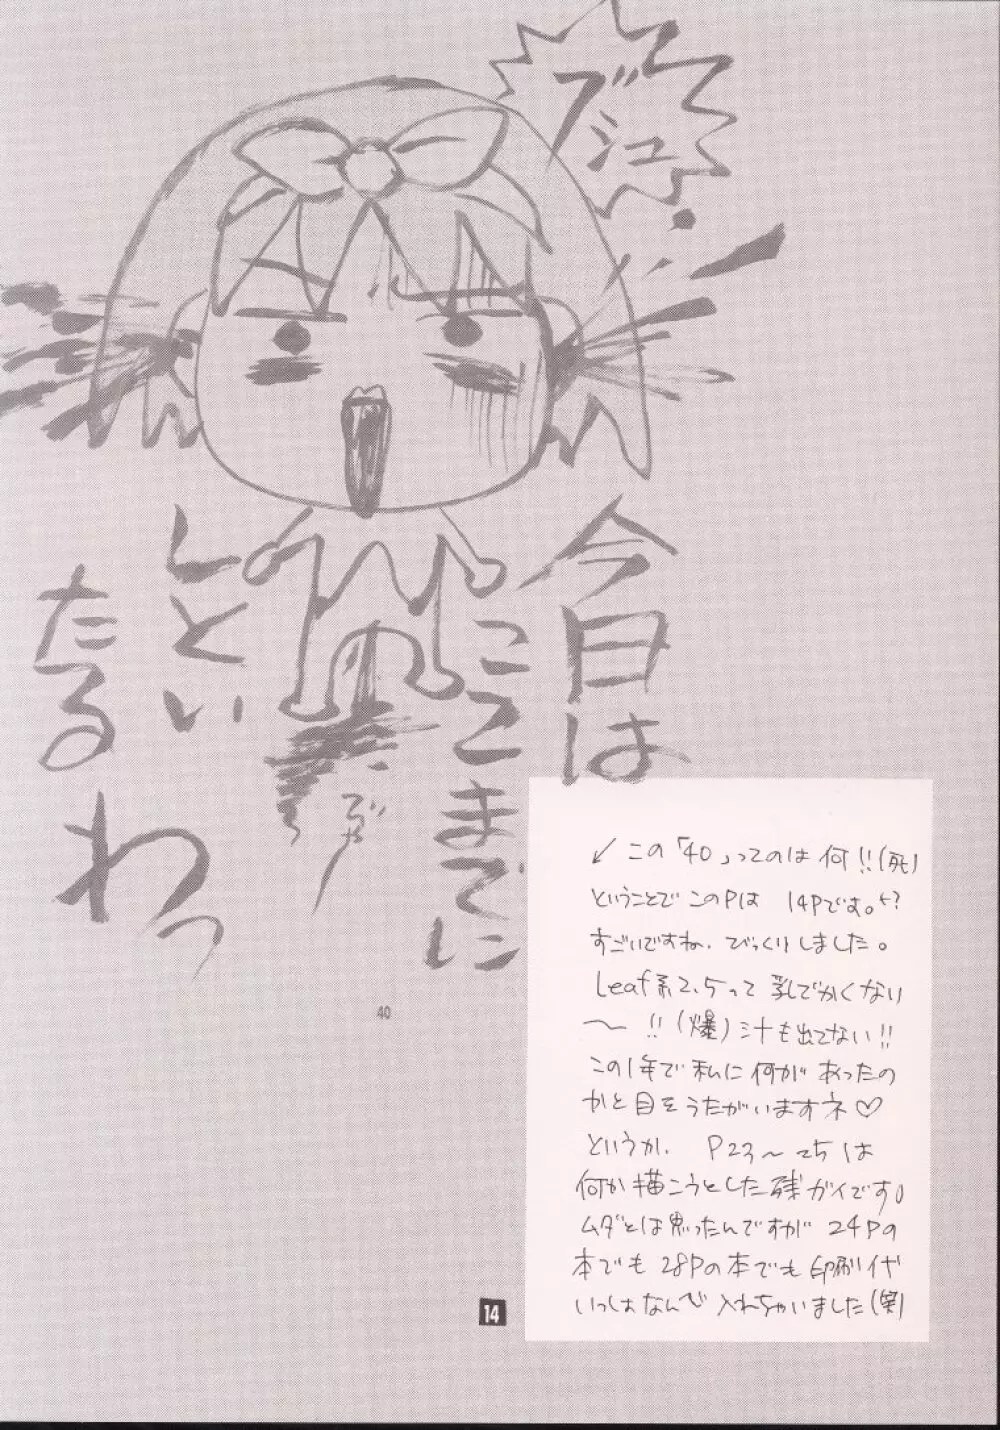 ブシュー
今日は
ここまでに
しとい
たるわっ
40
↙この「40」ってのは何!!(死)
ということでこのPは 14Pです。
すごいですね、びっくりしました。
Leaf系2.5って乳でかくない
〜!!(爆)汁も出てない!!
この1年で私に何があったの
かと目をうたがいますネ♡
というか、P23〜25は
何か描こうとした残ガイです。
ムダとは思ったんですが24Pの
本でも28Pの本でも印刷代が
いっしょなんで入れちゃいました(笑)
14